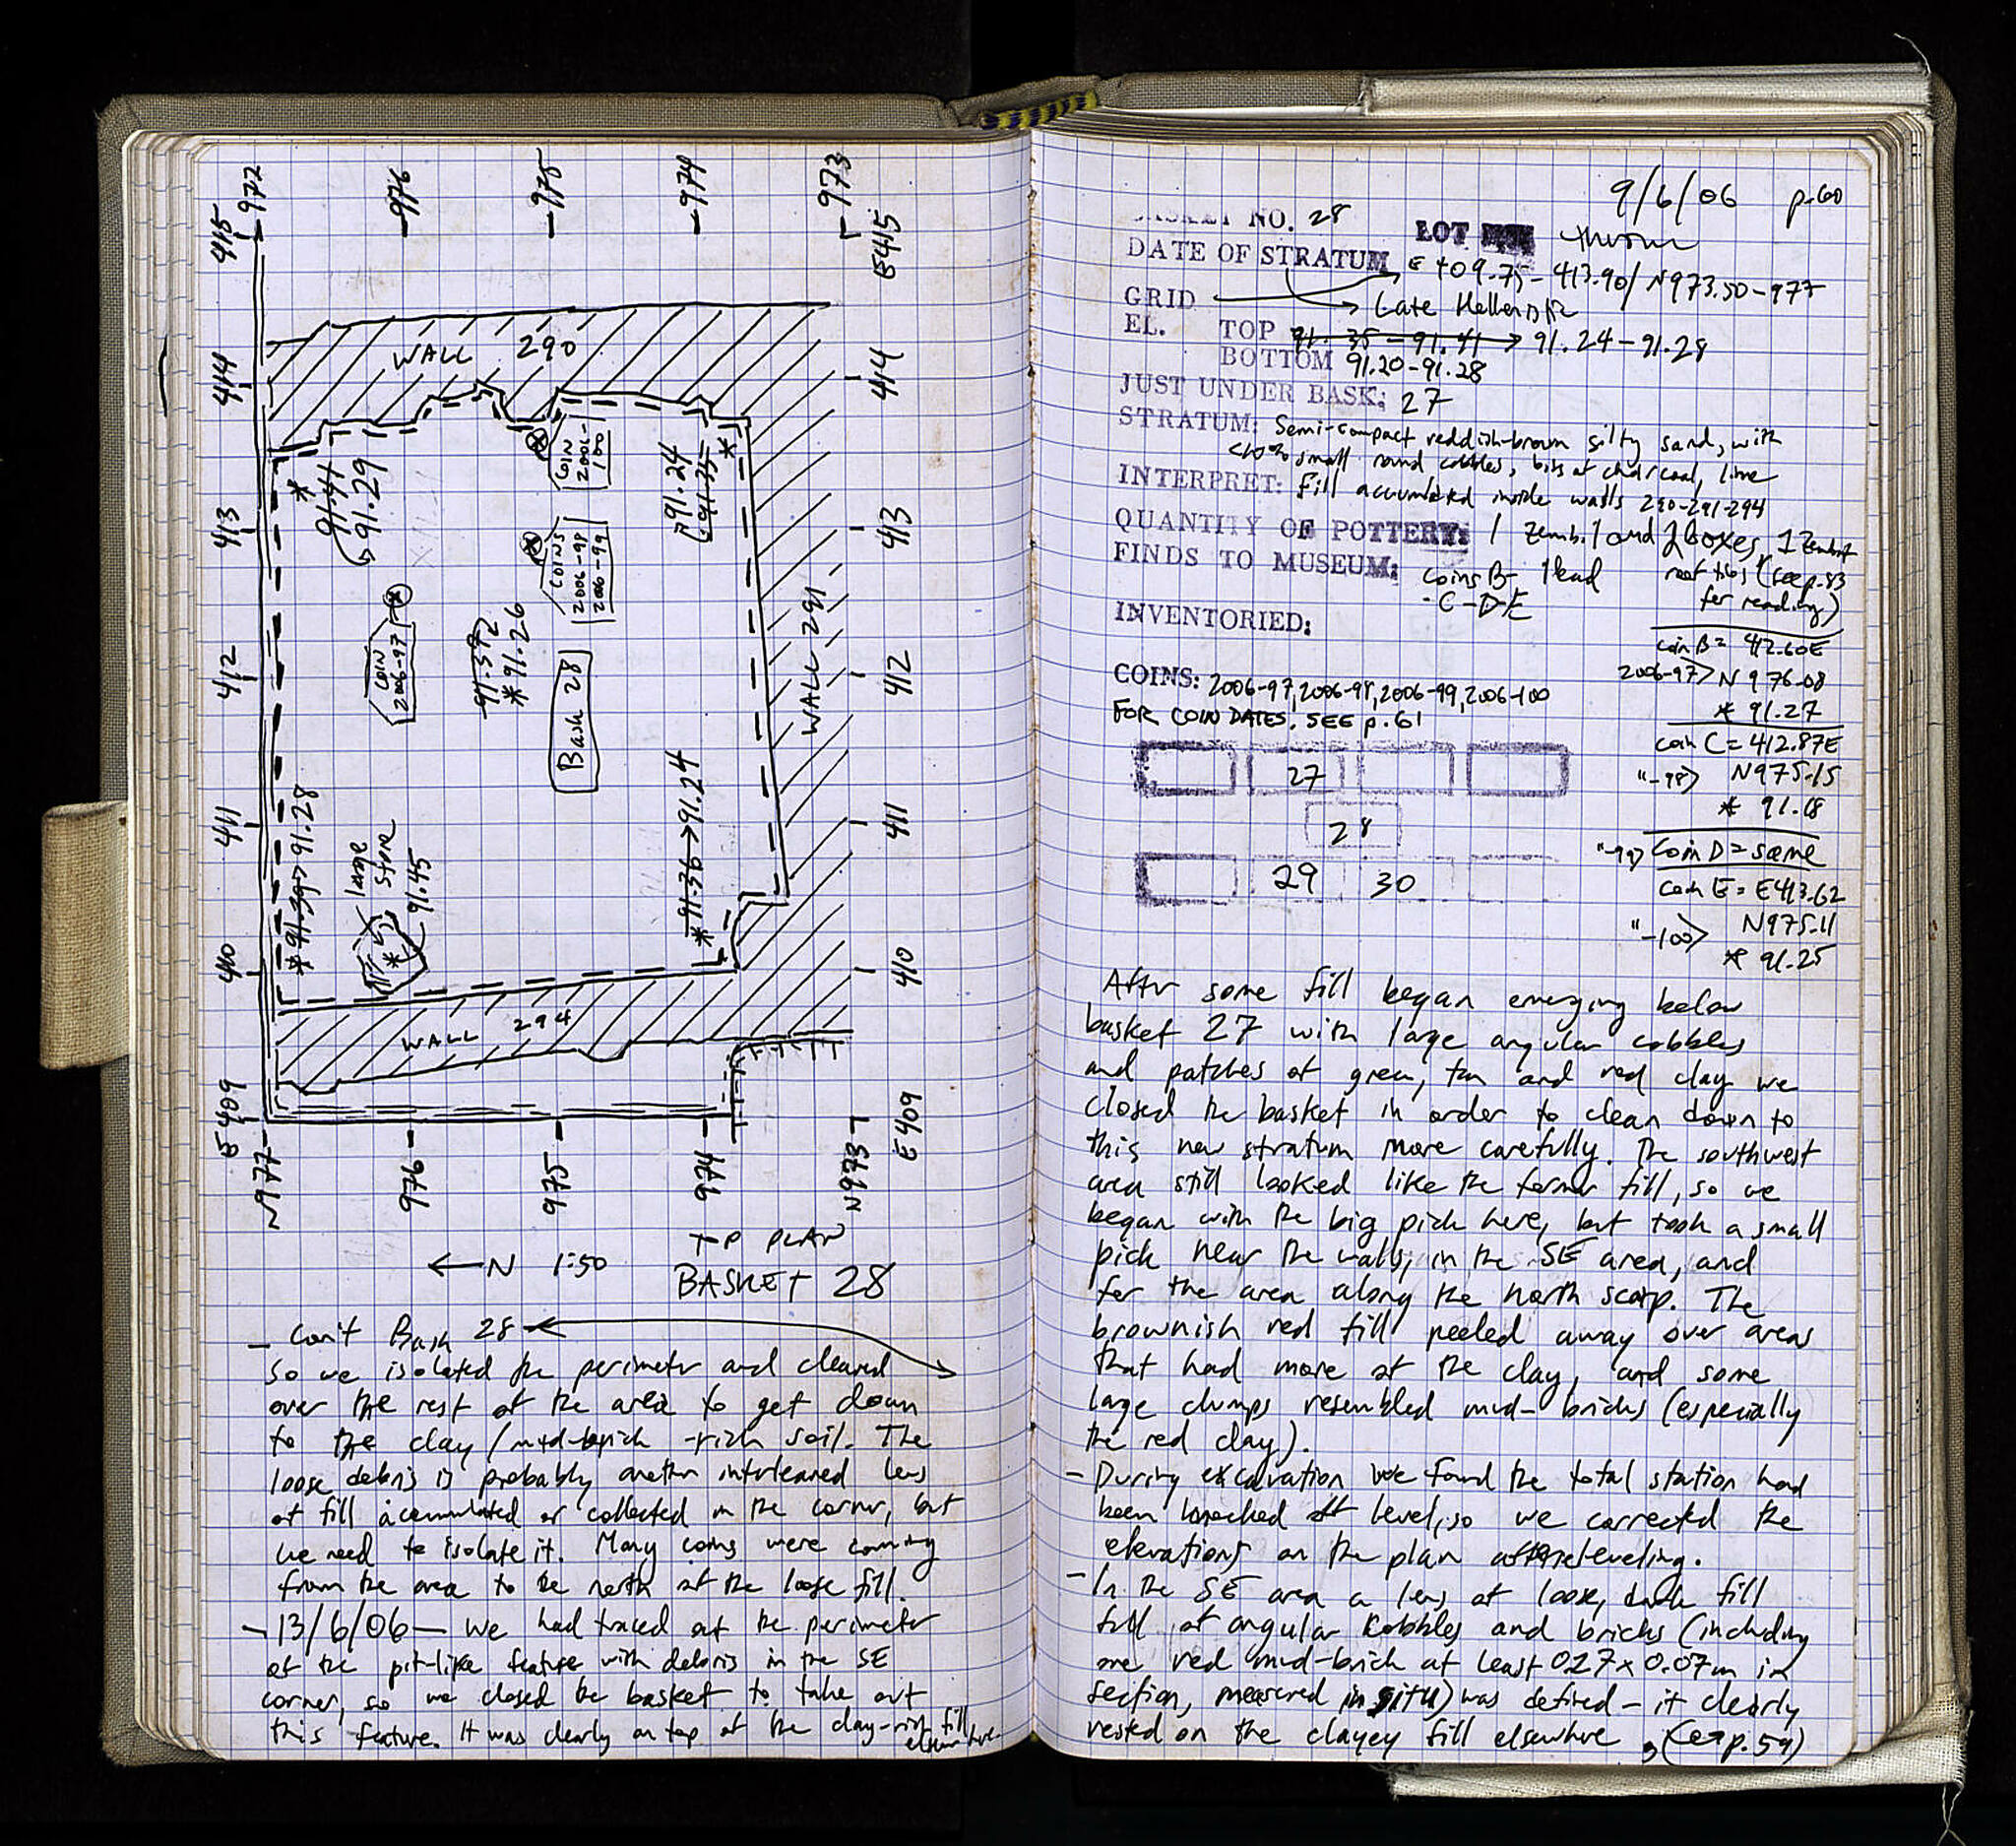 415
-972
-976
-975
-974
-973
E415
WALL 290
414
414
COIN
2006-
100
91.41
91.29
91.24
91.35
413
413
COINS
2006-98
2006-99
COIN
2006-97
91.372
*91.26
412
412
Bask 28
WALL 291
411
411
*91.39→91.28
large
stone
91.45
*91.36→91.24
410
410
WALL 294
E409
E409
N977
976
975
974
N973
←N 1:50
TOP PLAN
BASKET 28
- Con't Bask 28
so we isolated the perimeter and cleared
over the rest of the area to get down
to the clay/mud-brick-rich soil. The
loose debris is probably another interleaved lens
of fill accumulated or collected in the corner, but
we need to isolate it. Many coins were coming
from the area to the north of the loose fill.
- 13/6/06 - We had traced out the perimeter
of the pit-like feature with debris in the SE
corner, so we closed the basket to take out
this feature. It was clearly on top of the clay-rich fill
elsewhere.
9/6/06 p.60
BASKET NO. 28
LOT
DATE OF STRATUM
E 409.75-413.90/N973.50-977
GRID
Late Hellenistic
EL. TOP 91.35-91.41→91.24-91.28
BOTTOM 91.20-91.28
JUST UNDER BASK: 27
STRATUM: Semi-compact reddish-brown silty sand, with
<10% small round cobbles, bits of charcoal, lime
INTERPRET: Fill accumulated inside walls 290-291-294
QUANTITY OF POTTERY: 1 zemb. 1 and 2 boxes, 1 zembil
roof tiles (see p.53
for reading)
FINDS TO MUSEUM: coins B- 1 lead
-C-D-E
INVENTORIED:
coin B = 412.60E
2006-97> N 976.08
* 91.27
COINS: 2006-97, 2006-98, 2006-99, 2006-100
FOR COIN DATES. SEE p.61
coin C = 412.87E
"-98> N975.15
* 91.18
27
28
"-99> Coin D = same
29 30
coin E = E413.62
"-100> N975.11
* 91.25
After some fill began emerging below
basket 27 with large angular cobbles
and patches of green, tan and red clay we
closed the basket in order to clean down to
this new stratum more carefully. The southwest
area still looked like the former fill, so we
began with the big pick here, but took a small
pick near the walls, in the SE area, and
for the area along the north scarp. The
brownish red fill peeled away over areas
that had more of the clay, and some
large clumps resembled mud-bricks (especially
the red clay).
- During excavation we found the total station had
been knocked off level, so we corrected the
elevations on the plan after releveling.
- In the SE area a lens of loose, dark fill
full of angular cobbles and bricks (including
one red mud-brick at least 0.27x0.07m in
section, measured in situ) was defined - it clearly
rested on the clayey fill elsewhere, (→p.59)